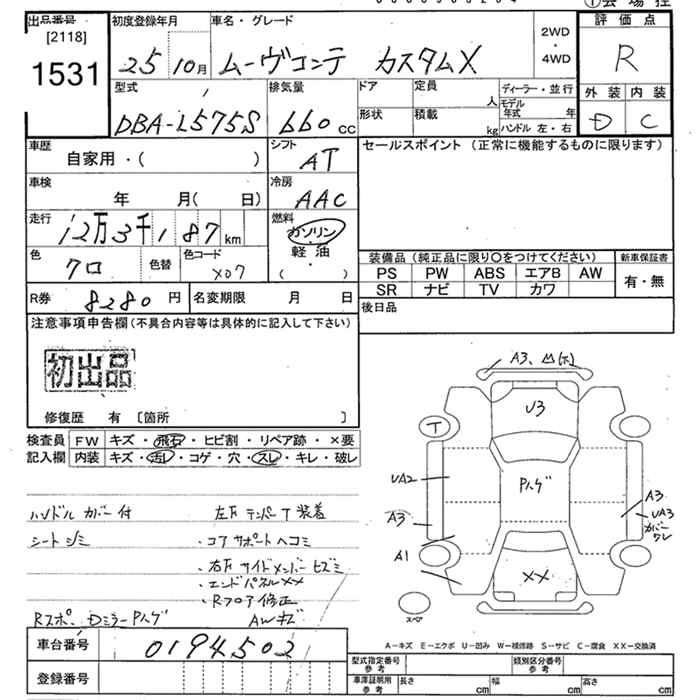 出品番号
[2118]
1531
初度登録年月
25 10月
車名・グレード
ムーヴコンテ カスタムX
2WD
・
4WD
評価点
R
外装 内装
D C
型式
DBA-L575S
排気量
660cc
ドア
定員
人
形状
積載
kg
ディーラー・並行
モデル年式 年
ハンドル 左・右
車歴
自家用・( )
シフト
AT
セールスポイント (正常に機能するものに限ります)
車検
年 月( 日)
冷房
AAC
走行
12万3千187km
燃料
ガソリン
軽油
( )
色
クロ
色替
色コード
X07
装備品 (純正品に限り○をつけてください)
新車保証書
PS PW ABS エアB AW
有・無
SR ナビ TV カワ
R券
8280円
名変期限 月 日
後日品
注意事項申告欄(不具合内容等は具体的に記入して下さい)
初出品
修復歴 有 [箇所 ]
検査員
記入欄
FW キズ・飛石・ヒビ割・リペア跡・×要
内装 キズ・汚レ・コゲ・穴・スレ・キレ・破レ
ハンドルカバー付
シートシミ
左右テンパーT装着
・コアサポートヘコミ
・右F サイドメンバーヒズミ
・エンドパネルXX
・Rフロア修正
Rスポ、DミラーPハゲ
AWキズ
A3
U3
T
UA2
Pハゲ
A3
A3
UA3
カバーワレ
A1
XX
スペア
A−キズ E−エクボ U−凹み W−補修跡 S−サビ C−腐食 XX−交換済
車台番号
0194502
登録番号
型式指定番号
参考
類別区分番号
参考
車庫証明用
参考
長さ cm
幅 cm
高さ cm